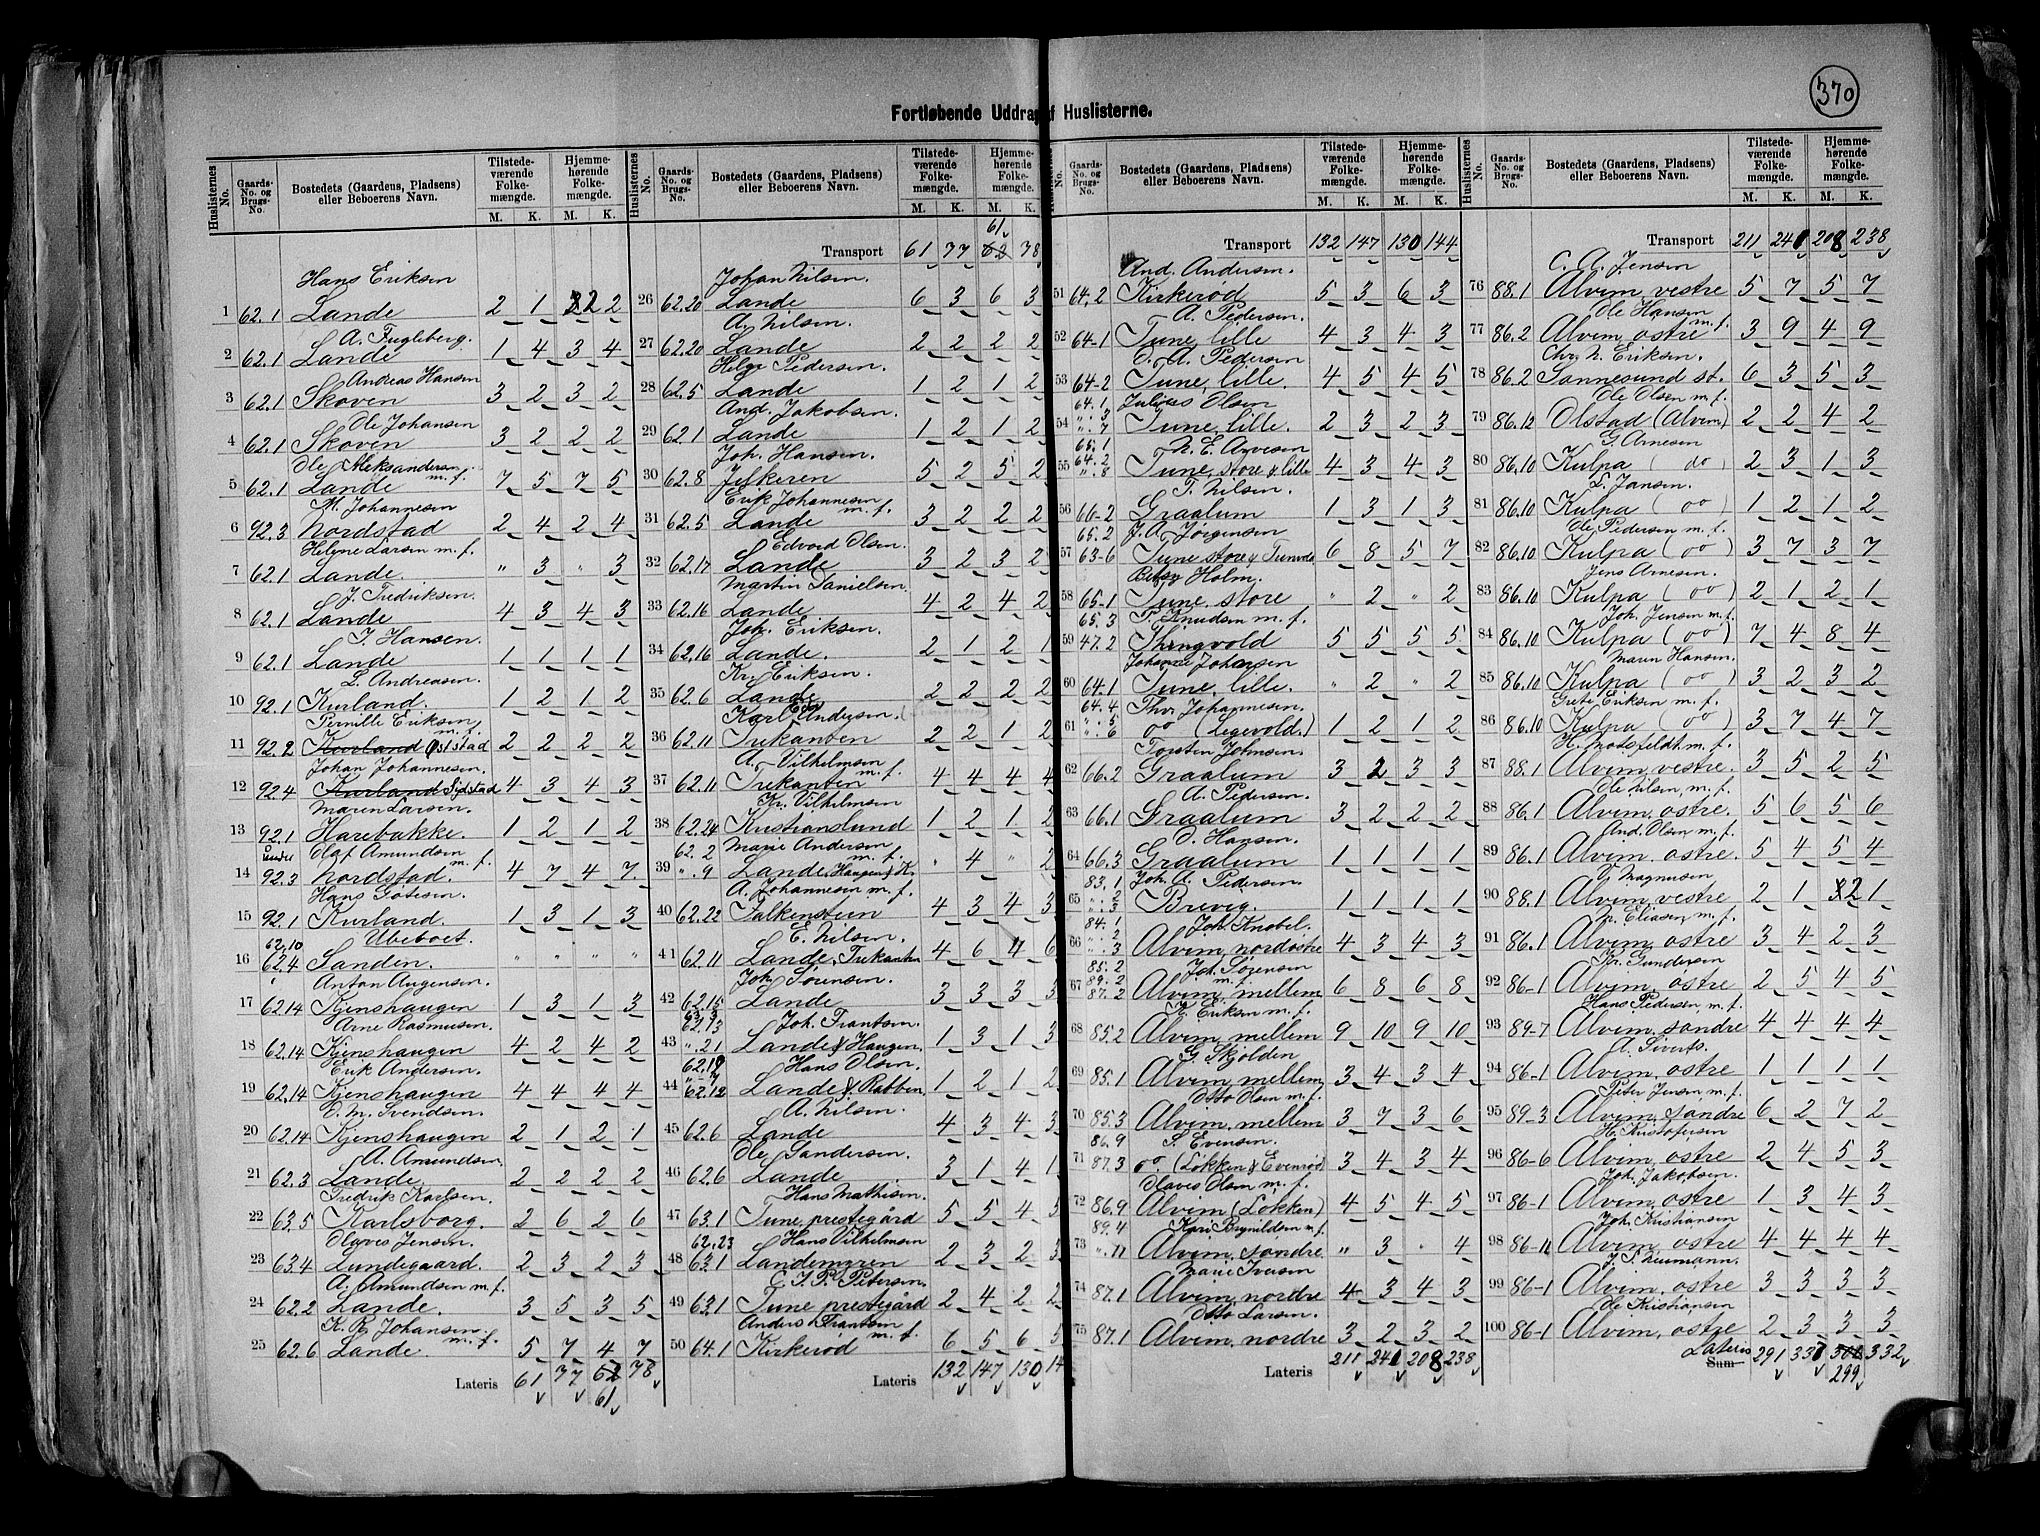 370
Fortløbende Uddrag af Huslisterne.
Huslisternes No. Gaards-No. og Brugs-No. Bostedets (Gaardens, Pladsens) eller Beboerens Navn. Tilstedeværende Folkemængde. Hjemmehørende Folkemængde.
M. K. M. K.
Hans Eriksen
1 62.1 Lande 2 1 2 2
A. Fugleberg.
2 62.1 Lande 1 4 3 4
Andreas Hansen
3 62.1 Skoven 3 2 3 2
Ole Johansen
4 62.1 Skoven 3 2 2 2
Ole Aleksandersen m. f.
5 62.1 Lande 7 5 7 5
M. Johannesen
6 92.3 Nordstad 2 4 2 4
Helene Larsen m. f.
7 62.1 Lande. " 3 " 3
J. Fredriksen.
8 62.1 Lande 4 3 4 3
I. Hansen.
9 62.1 Lande 1 1 1 1
L. Andreasen.
10 92.1 Kurland. 1 2 1 2
Pernille Eriksen m. f.
11 92.2 Kurland Øststad 2 2 2 2
Johan Johannesen.
12 92.4 Kurland Sydstad 4 3 4 3
Maren Larsen.
13 92.1 Harebakke. 1 2 1 2
Olaf Amundsen m. f.
14 under 92.3 Nordstad. 4 7 4 7
Hans Gøtesen.
15 92.1 Kurland. 1 3 1 3
Ubeboet.
16 62.10 62.4 Sanden. " " " "
Anton Augensen.
17 62.14 Kjenshaugen 1 3 1 3
Arne Rasmusen.
18 62.14 Kjenshaugen 4 2 4 2
Erik Andersen.
19 62.14 Kjenshaugen 4 4 4 4
O. M. Svendsen.
20 62.14 Kjenshaugen 2 1 2 1
A. Amundsen.
21 62.3 Lande. 2 2 2 2
Fredrik Karlsen.
22 63.5 Karlsborg. 2 6 2 6
Olaves Jensen.
23 63.4 Lundegaard. 2 3 2 3
A. Amundsen m. f.
24 62.2 Lande. 3 5 3 5
K. R. Johansen. m. f.
25 62.6 Lande 5 7 4 7
Lateris 61 77 62 78
61
Huslisternes No. Gaards-No. og Brugs-No. Bostedets (Gaardens, Pladsens) eller Beboerens Navn. Tilstedeværende Folkemængde. Hjemmehørende Folkemængde.
M. K. M. K.
61
Transport 61 77 62 78
Johan Nilsen.
26 62.20 Lande 6 3 6 3
A. Nilsen.
27 62.20 Lande 2 2 2 2
Helge Pedersen.
28 62.5 Lande 1 2 1 2
And. Jakobsen.
29 62.1 Lande 1 2 1 2
Joh. Hansen.
30 62.8 5 2 5 2
Erik Johannesen m. f.
31 62.5 Lande 3 2 2 2
Edvard Olsen.
32 62.17 Lande 3 2 3 2
Martin Danielsen
33 62.16 Lande 4 2 4 2
Joh. Eriksen.
34 62.16 Lande. 2 1 2 1
Kr. Eriksen.
35 62.6 Lande 2 2 2 2
Karl Andersen.
36 62.11 Trekanten 2 2 1 2
A. Vilhelmsen m. f.
37 62.11 Trekanten 4 4 4 4
Kr. Vilhelmsen
38 62.24 Kristianslund 1 2 1 2
Marie Andersen m. f.
39 62.2 ".9 Lande, Haugen & K. " 4 " 2
A. Johannesen m. f.
40 62.22 Falkenstein 4 3 4 3
E. Nilsen.
41 62.11 Lande, Trekanten 4 6 4 6
Joh. Sørensen.
42 62.15 Lande 3 3 3 3
Joh. Frantsen.
43 62.13 ".21 Lande & Haugen. 1 3 1 3
Hans Olsen.
44 62.12 Lande & Rabben 1 2 1 2
A. Nilsen.
45 62.6 Lande 4 3 4 3
Ole Sandersen.
46 62.6 Lande 3 1 4 1
Hans Mathisen.
47 63.1 Tune prestegård 5 5 4 5
Hans Vilhelmsen
48 62.23 63.1 Landemyren 2 3 2 3
C. J. P. Petersen.
49 63.1 Tune prestegård 2 4 2 2
Anders Frantsen m. f.
50 64.1 Kirkerød 6 5 6 5
Lateris 132 147 130 14
Gaards-No. og Brugs-No. Bostedets (Gaardens, Pladsens) eller Beboerens Navn. Tilstedeværende Folkemængde. Hjemmehørende Folkemængde.
M. K. M. K.
Transport 132 147 130 144
And. Andersen.
51 64.2 Kirkerød 5 3 6 3
A. Pedersen.
52 64-1 Tune, lille 4 3 4 3
O. A. Pedersen
53 64-2 Tune, lille. 4 5 4 5
Julius Olsen
54 64.1 ".3 ".7 Tune, lille. 2 3 2 3
N. E. Arvesen
55 65.1 64.2 ".8 Tune, store & lille 4 3 4 3
T. Nilsen.
56 66-2 Graalum 1 3 1 3
J. A. Jørgensen
57 65.2 63-6 Tune store & Tunvold 6 8 5 7
Betsy Holm.
58 65-1 Tune, store " 2 " 2
T. Knudsen m. f.
59 65.3 47.2 Thingvold 5 5 5 5
Johanne Johansen
60 64-1 Tune, lille. " 2 " 2
Thv. Johannesen.
61 64.4 ".5 ".6 oo (Legevold.) 1 2 1 2
Torsten Johnsen.
62 66.2 Graalum 3 2 3 3
A. Pedersen.
63 66.1 Graalum 3 2 2 2
D. Hansen.
64 66.3 Graalum 1 1 1 1
Joh. A. Pedersen.
65 83.1 ".2 ".3 Brevig. 1 1 1 1
Joh. Knobel.
66 84.1 ".2 ".3 Alvim, nordøstre 4 3 4 3
Joh. Sørensen m. f.
67 85.2 89.2 87.2 Alvim, mellem 6 8 6 8
K. Eriksen m. f.
68 85.2 Alvim, mellem 9 10 9 10
G. Skjolden
69 85.1 Alvim, mellem 3 4 3 4
Otto Olsen m. f.
70 85.3 Alvim, mellem 3 7 3 6
S. Evensen.
71 86.9 87.3 oo. (Løkken & Evenrød 3 4 3 4
Olaves Olsen m. f.
72 86.9 Alvim (Løkken) 4 5 4 5
Kari Brynildsen m. f.
73 89.4 ".11 Alvim, søndre " 3 " 4
Marie Iversen
74 87.1 Alvim, nordre 4 3 4 3
Otto Larsen.
75 87.1 Alvim, nordre 3 2 3 2
Lateris 211 240 208 238
Huslisternes No. Gaards-No. og Brugs-No. Bostedets (Gaardens, Pladsens) eller Beboerens Navn. Tilstedeværende Folkemængde. Hjemmehørende Folkemængde.
M. K. M. K.
Transport 211 240 208 238
C. A. Jensen
76 88.1 Alvim, vestre 5 7 5 7
Ole Hansen m. f.
77 86.2 Alvim, østre 3 9 4 9
Chr. N. Eriksen.
78 86.2 Sannesund st. 6 3 5 3
Ole Olsen m. f.
79 86.12 Olstad (Alvim) 2 2 4 2
G. Arnesen
80 86.10 Kulpa (do 2 3 1 3
L. Jansen.
81 86.10 Kulpa (oo) 1 2 1 2
Ole Pedersen m. f.
82 86.10 Kulpa (oo) 3 7 3 7
Jens Arnesen.
83 86.10 Kulpa (oo) 2 1 2 1
Joh. Jensen m. f.
84 86.10 Kulpa (oo) 7 4 8 4
Maren Hansen.
85 86.10 Kulpa (oo) 3 2 3 2
Grete Eriksen m. f.
86 86.10 Kulpa (oo) 3 7 4 7
H. Motsfeldt m. f.
87 88.1 Alvim, vestre. 3 5 2 5
Ole Nilsen, m. f.
88 86.1 Alvim, østre. 5 6 5 6
And. Olsen m. f.
89 86.1 Alvim, østre. 5 4 5 4
V. Magnusen
90 88.1 Alvim, vestre 2 1 2 1
N. Eliasen, m. f.
91 86.1 Alvim, østre. 3 4 2 3
Kr. Gundersen
92 86-1 Alvim, østre 2 5 4 5
Hans Pedersen, m. f.
93 89-7 Alvim, søndre 4 4 4 4
A. Siverts.
94 86-1 Alvim, østre 1 1 1 1
Peter Jensen m. f.
95 89-3 Alvim, søndre 6 2 7 2
H. Kristofersen
96 86-6 Alvim, østre 2 4 5 3
Joh. Jakobsen.
97 86-1 Alvim, østre 1 3 4 3
Joh. Kristiansen
98 86-11 Alvim, østre 4 4 4 4
J. T. Neumann.
99 86-1 Alvim, østre 3 3 3 3
Ole Kristiansen
100 86-1 Alvim, østre 2 3 3 3
Lateris
Sum 291 331 300 332
299